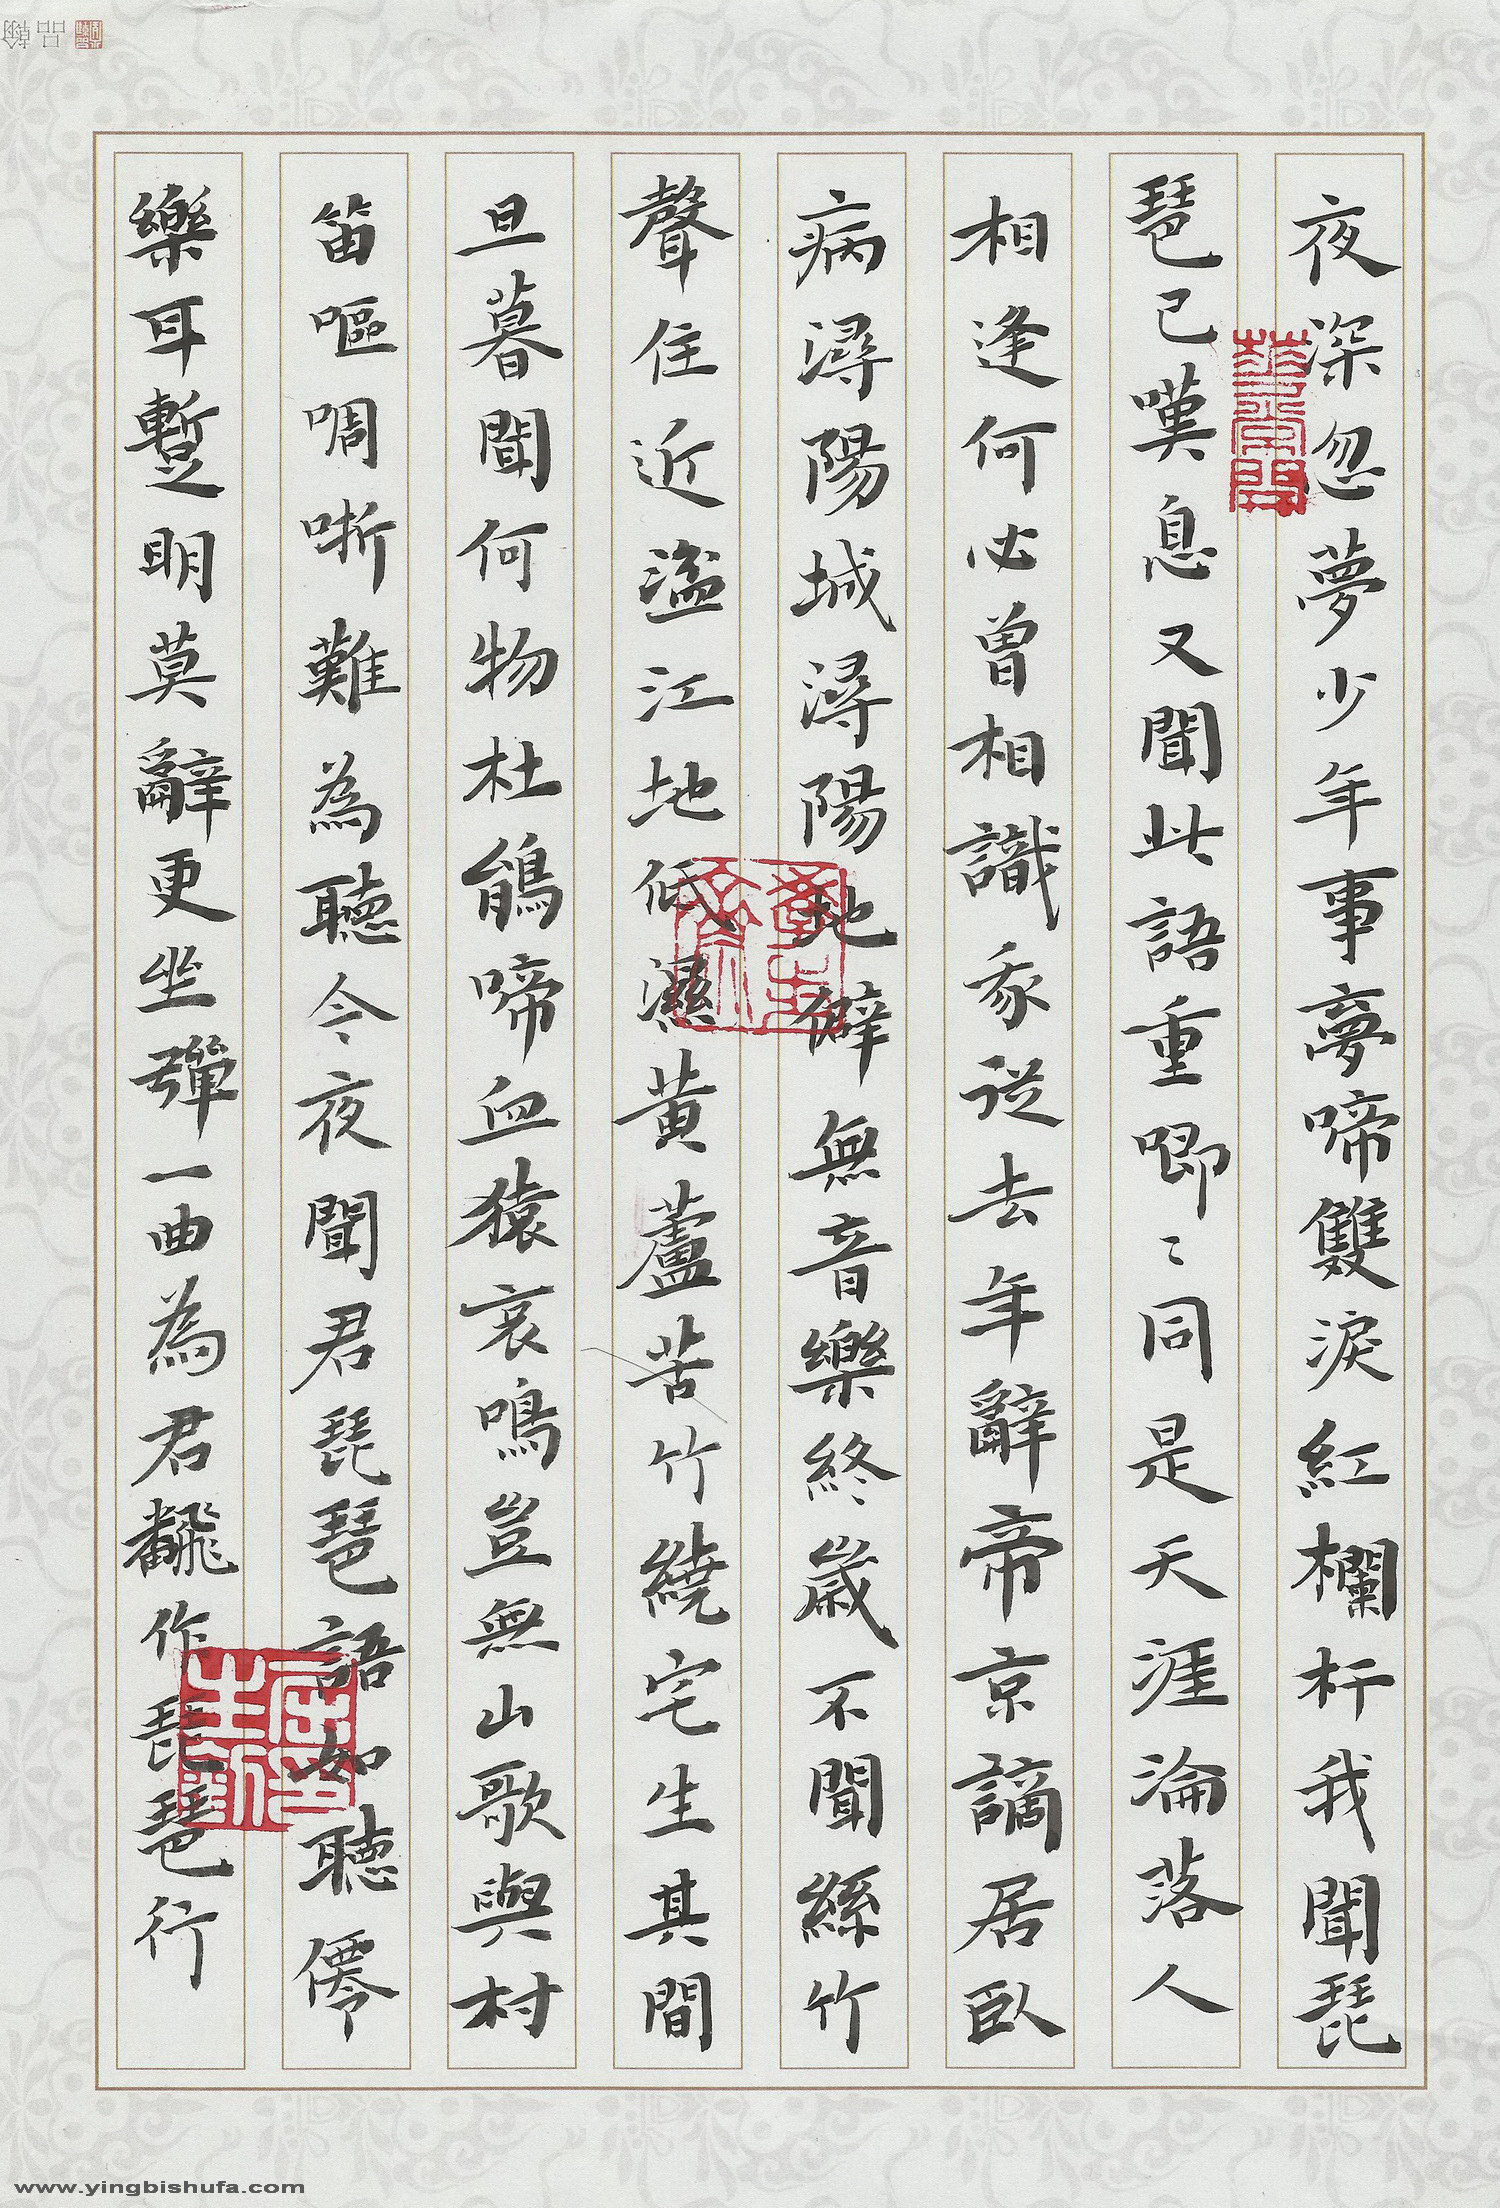 夜深忽夢少年事夢啼雙淚紅欄杆我聞琵
琶已嘆息又聞此語重唧〻同是天涯淪落人
相逢何必曾相識我從去年辭帝京謫居臥
病潯陽城潯陽地僻無音樂終歲不聞絲竹
聲住近湓江地低濕黃蘆苦竹繞宅生其間
旦暮聞何物杜鵑啼血猿哀鳴豈無山歌與村
笛嘔啁哳難為聽今夜聞君琵琶語如聽僊
樂耳暫明莫辭更坐彈一曲為君飜作琵琶行
品翰
www.yingbishufa.com